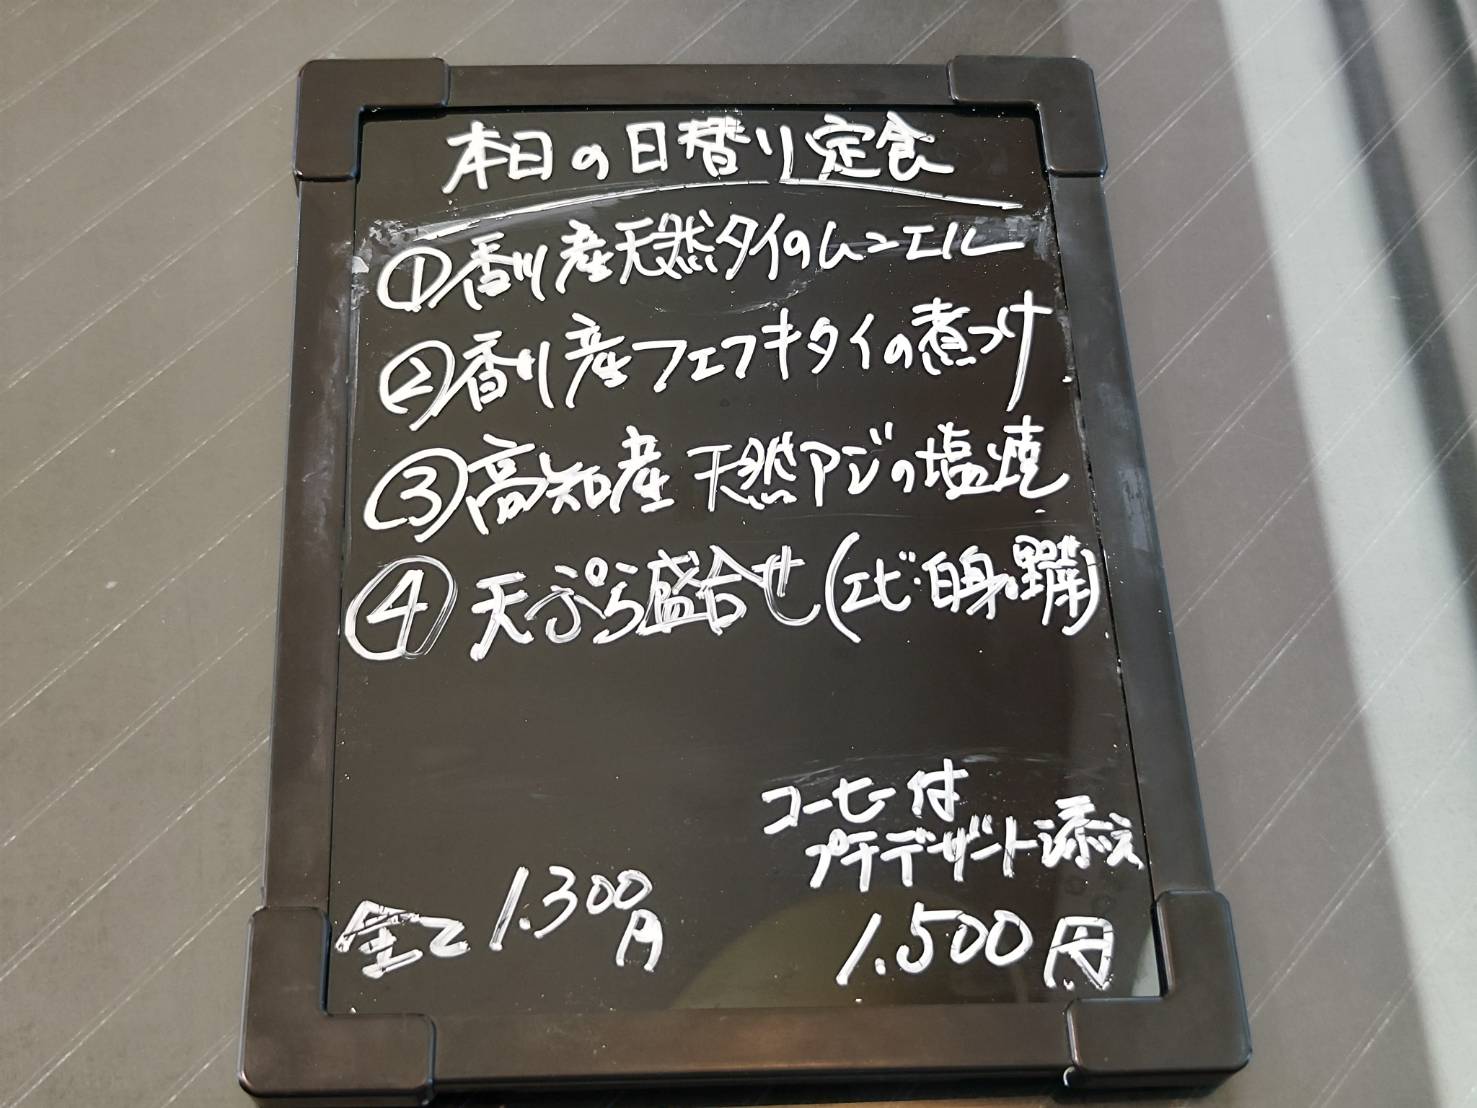 本日の日替り定食
①香川産天然タイのムニエル
②香川産フエフキタイの煮つけ
③高知産 天然アジの塩焼
④天ぷら盛合せ(エビ・白身・野菜)
コーヒー付
プチデザート添え
全て 1.300円
1.500円